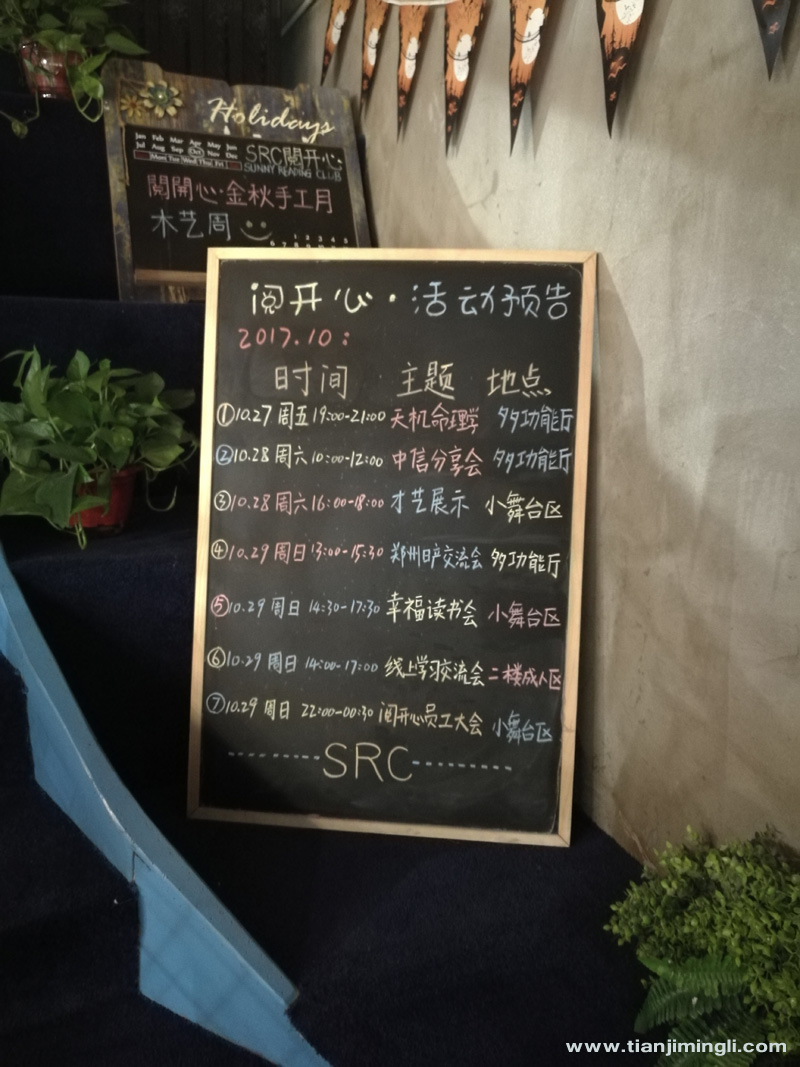 Holidays
Jan Feb Mar Apr May Jun
Jul Aug Sep Oct Nov Dec
Mon Tue Wed Thu Fri
SRC閱开心
SUNNY READING CLUB
閱開心·金秋手工月
木艺周
1 2 3 4 5
阅开心·活动预告
2017.10:
时间 主题 地点
①10.27 周五 19:00-21:00 天机命理学 多功能厅
②10.28 周六 10:00-12:00 中信分享会 多功能厅
③10.28 周六 16:00-18:00 才艺展示 小舞台区
④10.29 周日 13:00-15:30 郑州日产交流会 多功能厅
⑤10.29 周日 14:30-17:30 幸福读书会 小舞台区
⑥10.29 周日 14:00-17:00 线上学习交流会 二楼成人区
⑦10.29 周日 22:00-00:30 阅开心员工大会 小舞台区
SRC
www.tianjimingli.com